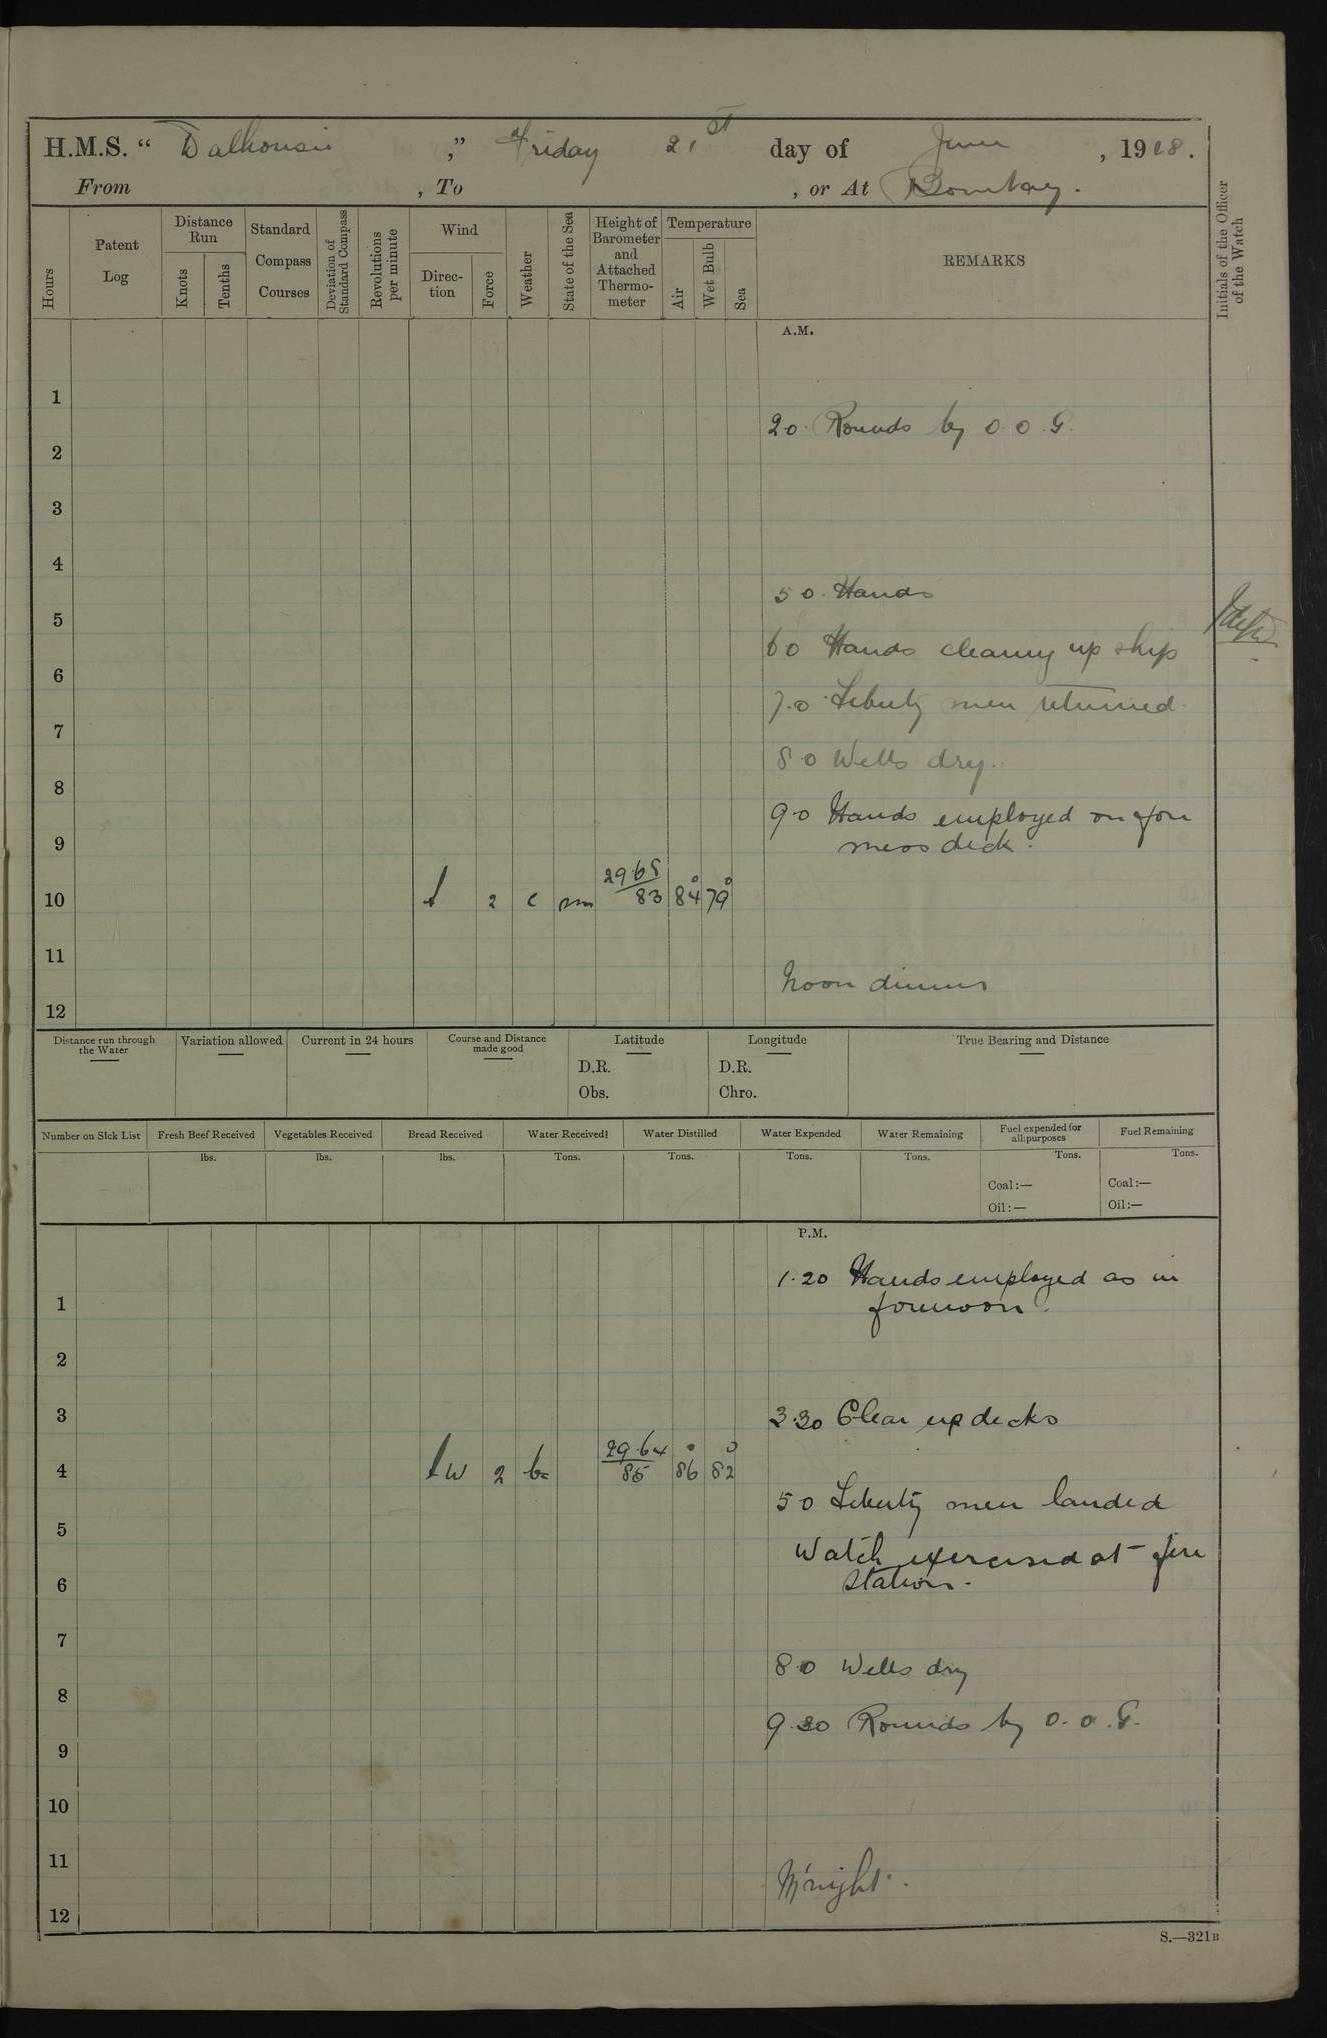 H.M.S. “ Dalhousie ,” Friday 21st day of June , 1918.
From , To , or At Bombay.
Hours
Patent Log
Distance Run
Knots
Tenths
Standard Compass Courses
Deviation of Standard Compass
Revolutions per minute
Wind
Direc-tion
Force
Weather
State of the Sea
Height of Barometer and Attached Thermo-meter
Temperature
Air
Wet Bulb
Sea
REMARKS
Initials of the Officer of the Watch
A.M.
1
2.0. Rounds by O.O.G.
2
3
4
5.0. Hands
5
6.0 Hands cleaning up ship
6
7.0 Liberty men returned.
7
8.0 Wells dry.
8
9.0 Hands employed on fore
9 mess deck.
29.68
10 2 c 83 84° 79°
11
Noon dinner
12
Distance run through the Water
Variation allowed
Current in 24 hours
Course and Distance made good
Latitude
D.R.
Obs.
Longitude
D.R.
Chro.
True Bearing and Distance
Number on Sick List
Fresh Beef Received
Vegetables Received
Bread Received
Water Received
Water Distilled
Water Expended
Water Remaining
Fuel expended for all purposes
Fuel Remaining
lbs. lbs. lbs. Tons. Tons. Tons. Tons. Tons. Tons.
Coal:— Coal:—
Oil:— Oil:—
P.M.
1.20 Hands employed as in
1 forenoon.
2
3 3.30 Clear up decks
29.64
4 W 2 bc 85 86° 82°
5.0 Liberty men landed
5
Watch exercised at fire
6 station.
7
8.0 Wells dry
8
9.30 Rounds by O.O.G.
9
10
11
M'night.
12
S.—321B